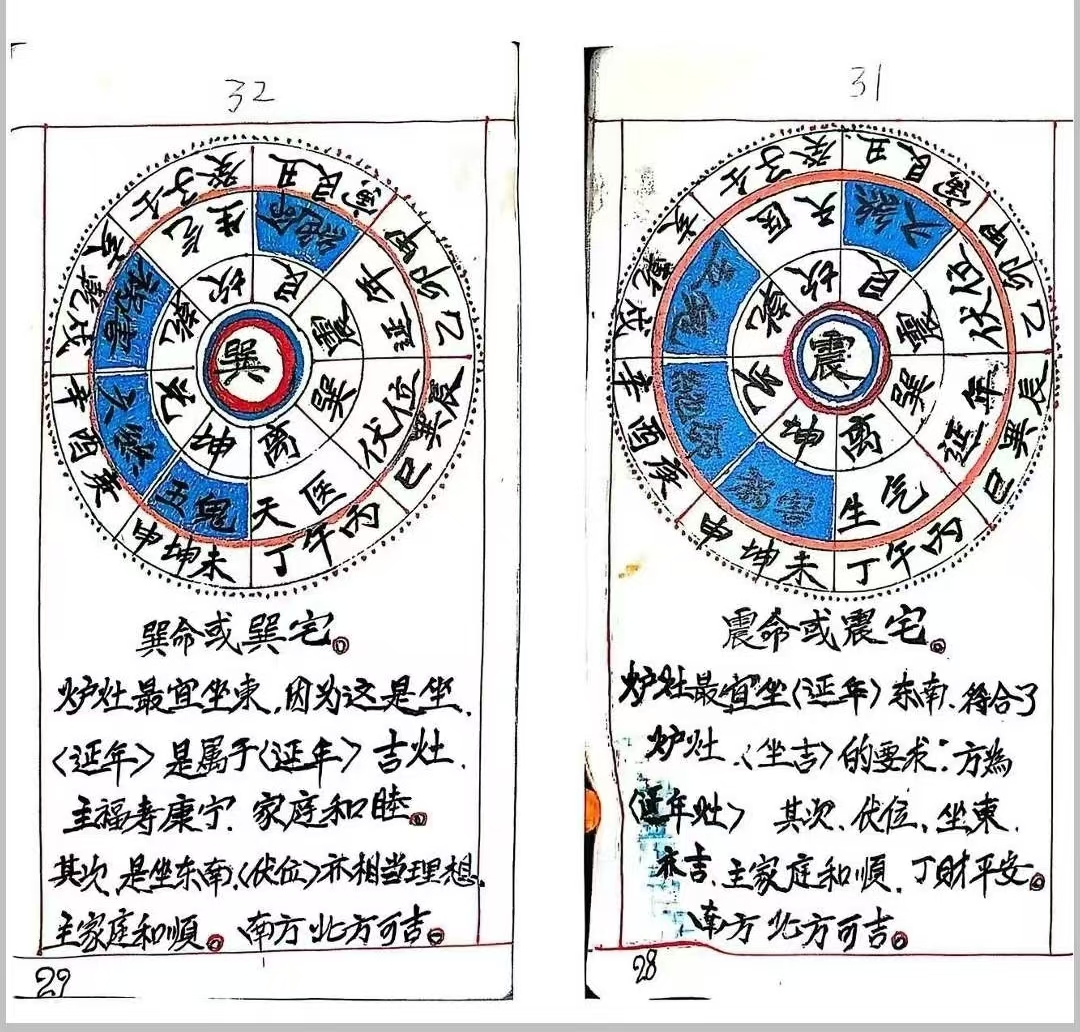 32
壬子癸
丑艮寅
甲卯乙
辰巽巳
丙午丁
未坤申
庚酉辛
戌乾亥
生气
绝命
延年
伏位
天医
五鬼
六煞
祸害
坎
艮
震
巽
离
坤
兑
乾
巽
巽命或巽宅。
炉灶最宜坐東,因为这是坐、
〈延年〉是属于〈延年〉吉灶、
主福寿康宁.家庭和睦。
其次、是坐东南、〈伏位〉亦相当理想、
主家庭和順。、南方、北方可吉。
29
31
壬子癸
丑艮寅
甲卯乙
辰巽巳
丙午丁
未坤申
庚酉辛
戌乾亥
天医
六煞
伏位
延年
生气
祸害
绝命
五鬼
坎
艮
震
巽
离
坤
兑
乾
震
震命或震宅。
炉灶最宜坐〈延年〉东南、符合了
炉灶、〈坐吉〉的要求:方為
〈延年灶〉 其次、伏位、坐東、
亦吉、主家庭和順、丁財平安。
、南方、北方可吉。
28